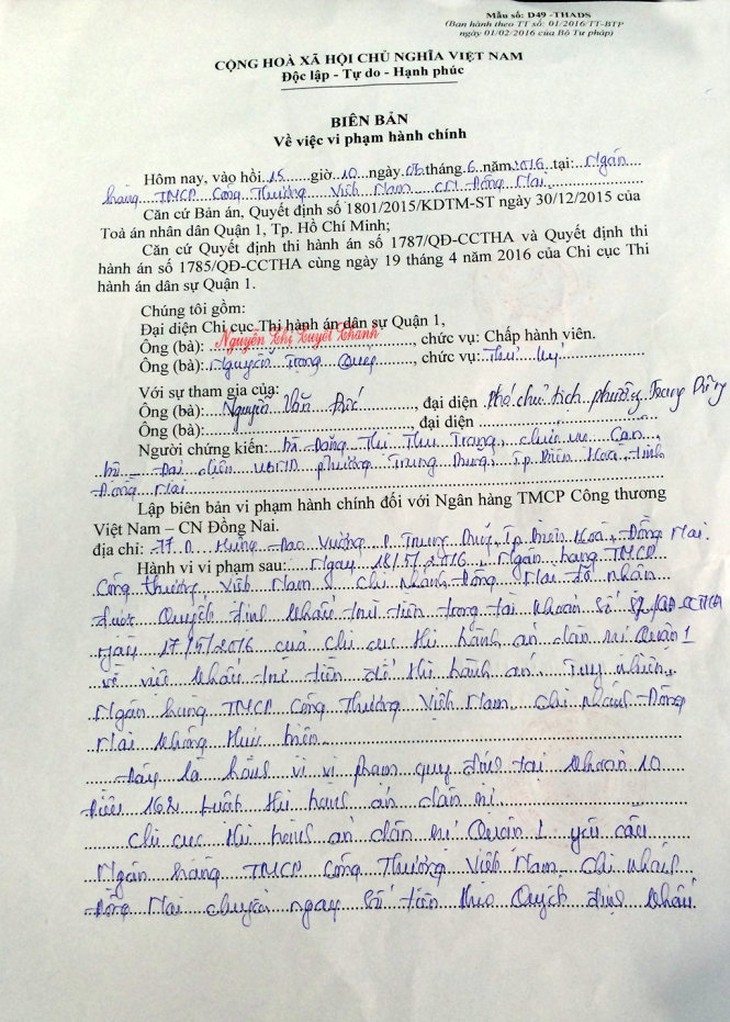 Mẫu số: D49 -THADS
(Ban hành theo TT số: 01/2016/TT-BTP
ngày 01/02/2016 của Bộ Tư pháp)
CỘNG HOÀ XÃ HỘI CHỦ NGHĨA VIỆT NAM
Độc lập - Tự do - Hạnh phúc
BIÊN BẢN
Về việc vi phạm hành chính
Hôm nay, vào hồi 15 giờ 10 ngày 06 tháng 6 năm 2016 tại: Ngân
hàng TMCP Công Thương Việt Nam CN Đồng Nai
Căn cứ Bản án, Quyết định số 1801/2015/KDTM-ST ngày 30/12/2015 của
Toà án nhân dân Quận 1, Tp. Hồ Chí Minh;
Căn cứ Quyết định thi hành án số 1787/QĐ-CCTHA và Quyết định thi
hành án số 1785/QĐ-CCTHA cùng ngày 19 tháng 4 năm 2016 của Chi cục Thi
hành án dân sự Quận 1.
Chúng tôi gồm:
Đại diện Chi cục Thi hành án dân sự Quận 1,
Ông (bà): Nguyễn Thị Tuyết Thanh, chức vụ: Chấp hành viên.
Ông (bà): Nguyễn Trọng, chức vụ: Thư ký
Với sự tham gia của:
Ông (bà): Nguyễn Văn Đức, đại diện Phó chủ tịch phường Trung Dũng
Ông (bà):, đại diện
Người chứng kiến: bà Đặng Thị Thu Trang, chức vụ Cán
bộ - Đại diện UBND phường Trung Dũng, Tp. Biên Hoà, tỉnh
Đồng Nai
Lập biên bản vi phạm hành chính đối với Ngân hàng TMCP Công thương
Việt Nam – CN Đồng Nai.
địa chỉ: Hưng Đạo Vương, P. Trung Dũng, Tp. Biên Hoà, Đồng Nai.
Hành vi vi phạm sau: Ngày 18/5/2016, Ngân hàng TMCP
Công thương Việt Nam chi nhánh Đồng Nai đã nhận
được Quyết định khấu trừ tiền trong tài khoản số /QĐ-CCTHA
ngày 17/5/2016 của chi cục thi hành án dân sự Quận 1
về việc khấu trừ tiền để thi hành án. Tuy nhiên,
Ngân hàng TMCP Công Thương Việt Nam chi nhánh Đồng
Nai không thực hiện.
Đây là hành vi vi phạm quy định tại khoản 10
Điều 162 Luật thi hành án dân sự
Chi cục thi hành án dân sự Quận 1 yêu cầu
Ngân hàng TMCP Công Thương Việt Nam chi nhánh
Đồng Nai chuyển ngay số tiền theo Quyết định khấu